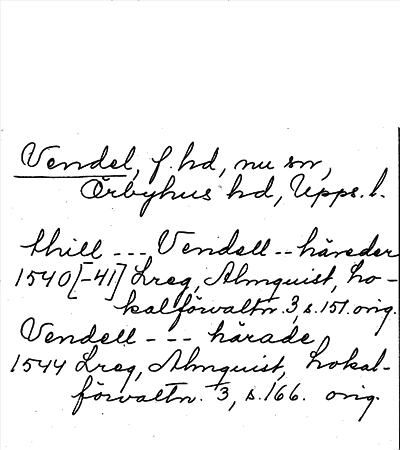 Vendel, f. hd, nu sn,
Örbyhus hd, Upps. l.
thill --- Vendell -- häreder
1540[-41] Lreg, Almquist, Lo-
kalförvaltn. 3, s. 151. orig.
Vendell --- härade
1544 Lreg, Almquist, Lokal-
förvaltn. 3, s. 166. orig.